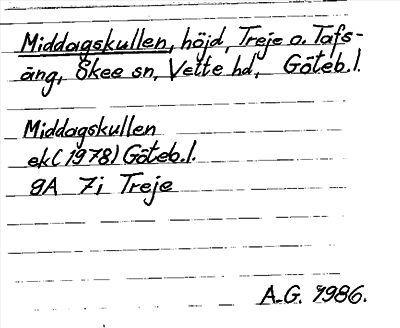 Middagskullen, höjd, Treje o. Tafs-
äng, Skee sn, Vette hd, Göteb.l.
Middagskullen
ek(1978) Göteb.l.
9A 7i Treje
A.G. 1986.